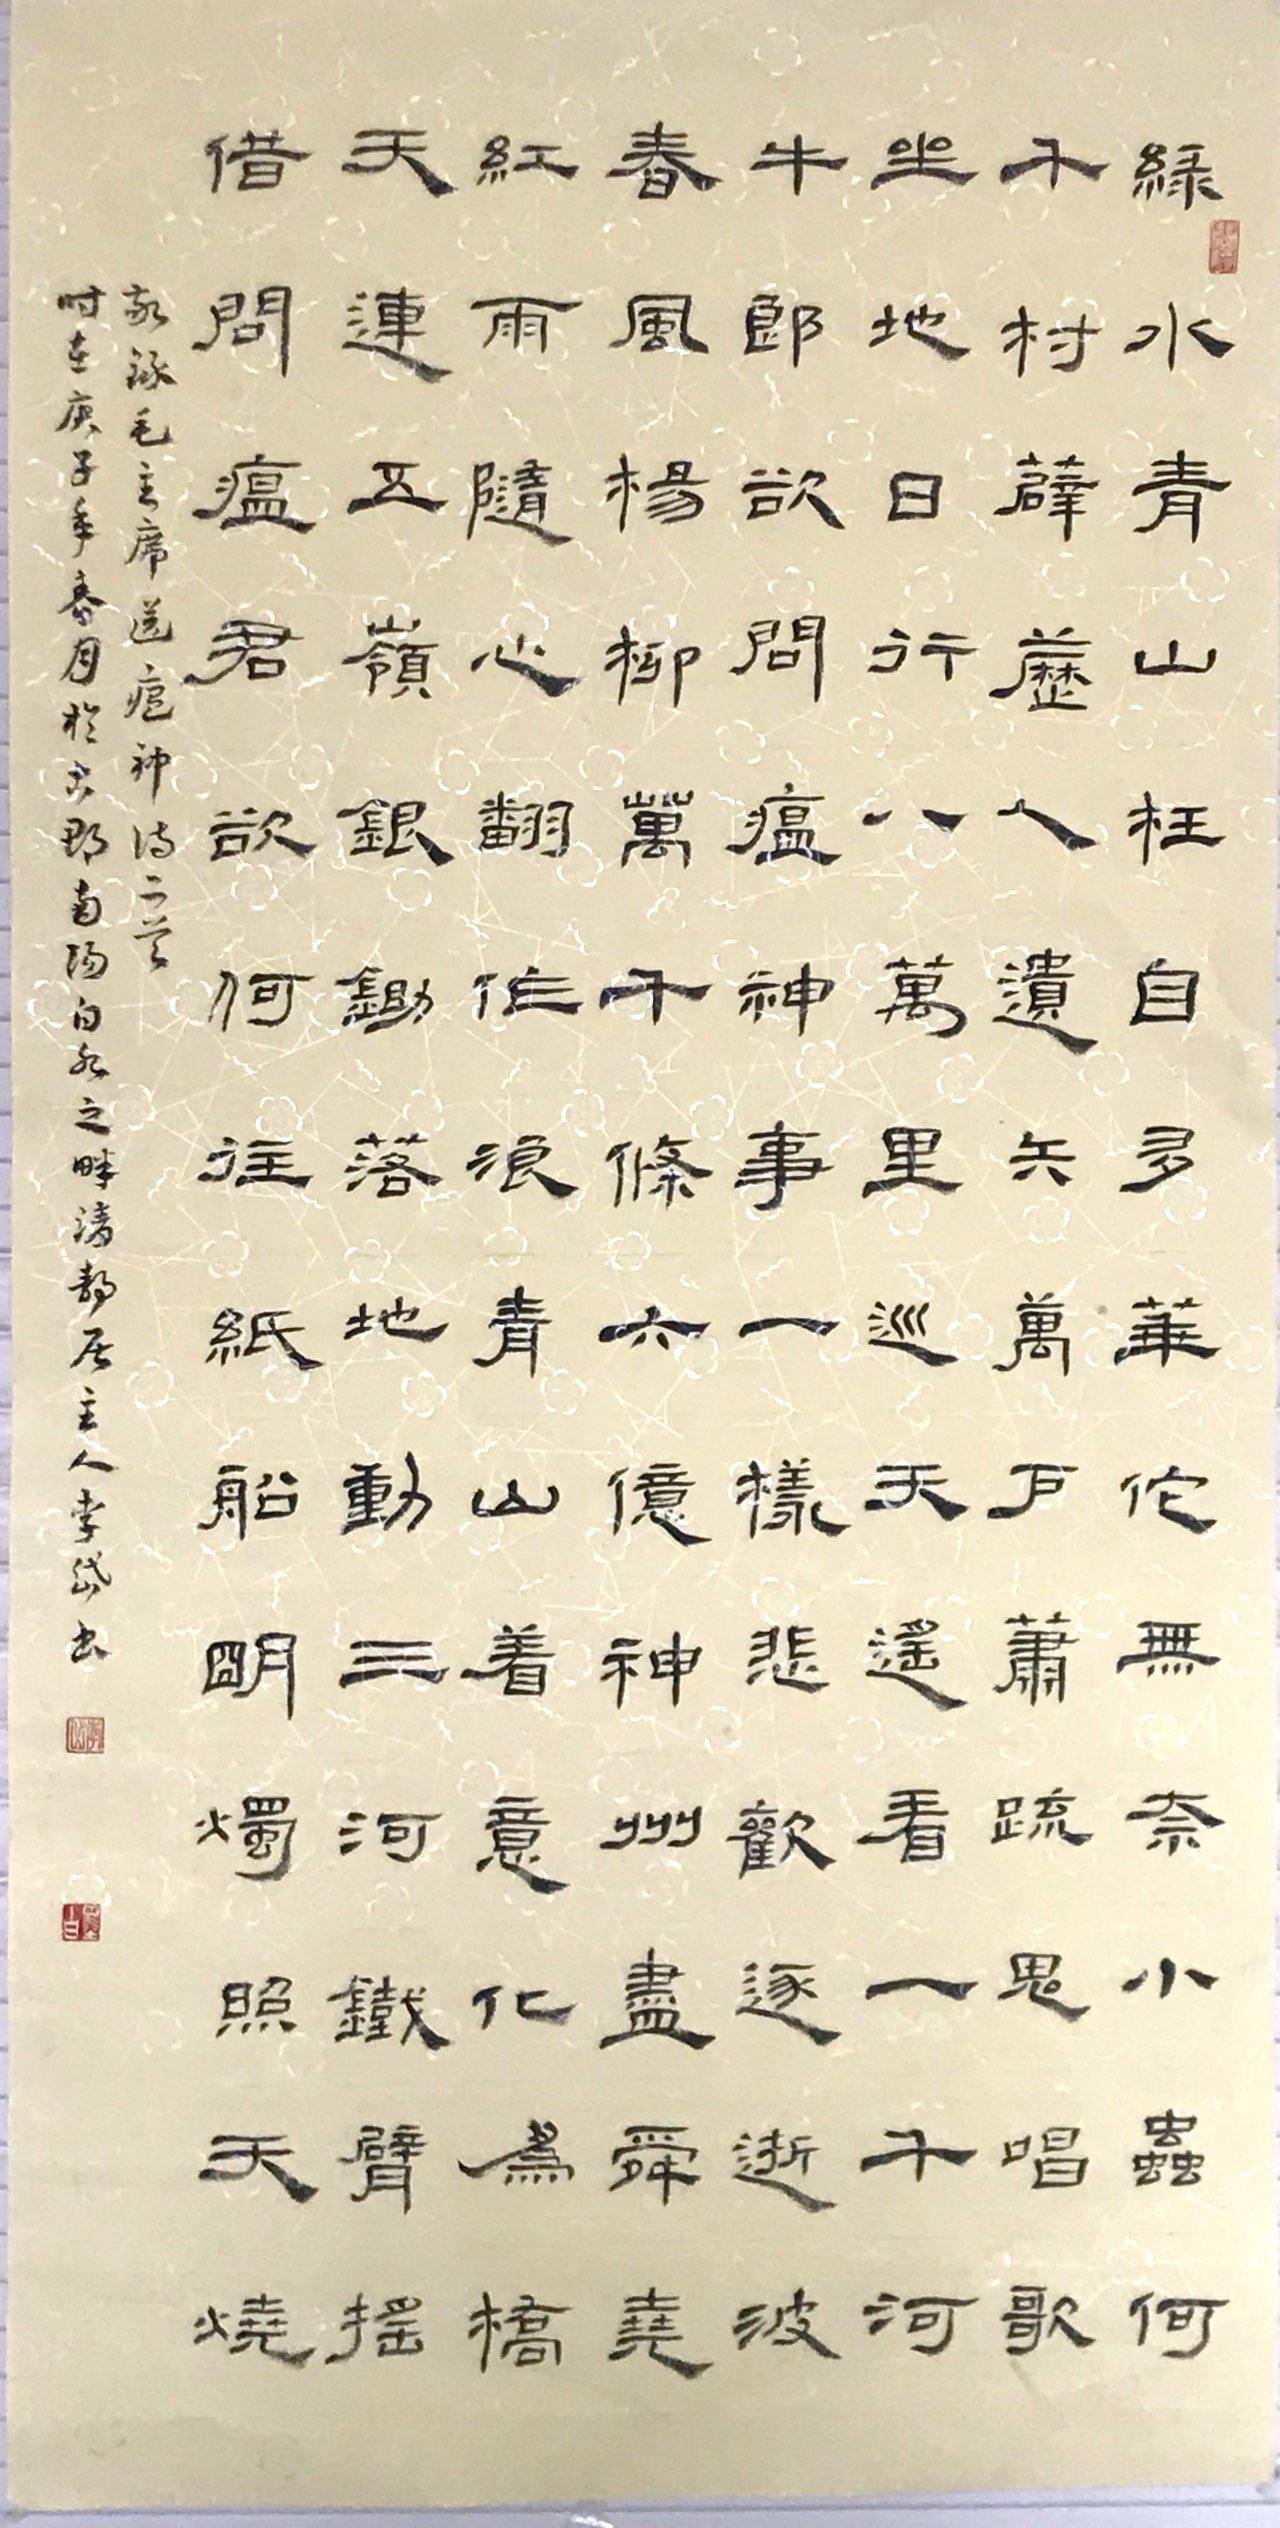 綠水青山枉自多華佗無奈小蟲何
千村薜藶人遺矢萬戶蕭疏鬼唱歌
坐地日行八萬里巡天遙看一千河
牛郎欲問瘟神事一樣悲歡逐逝波
春風楊柳萬千條六億神州盡舜堯
紅雨隨心翻作浪青山着意化為橋
天連五嶺銀鋤落地動三河鐵臂搖
借問瘟君欲何往紙船明燭照天燒
敬錄毛主席送瘟神詩二首
時在庚子年春月於古郡南陽白水之畔清靜居主人李岱書